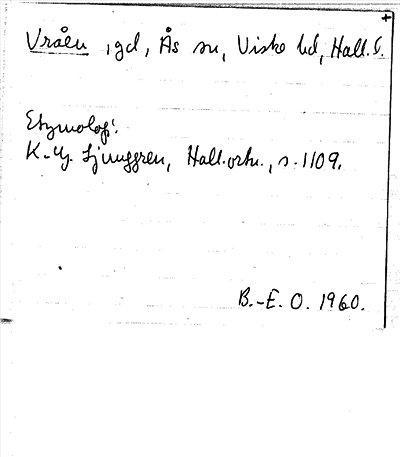 Vråen, gd, Ås sn, Viske hd, Hall. l.
Etymologi:
K.-G. Ljunggren, Hall. ortn., s. 109.
B.-E. O. 1960.